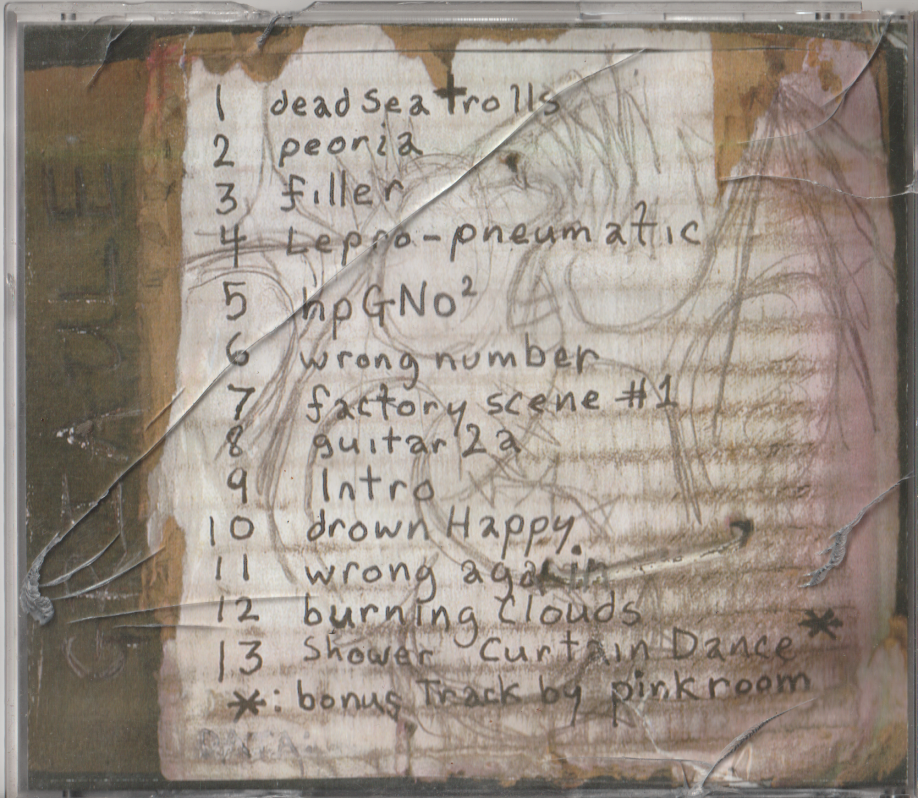 1 dead sea trolls
2 peoria
3 filler
4 Lepro-pneumatic
5 hpGNo²
6 wrong number
7 factory scene #1
8 guitar 2a
9 Intro
10 drown Happy
11 wrong again
12 burning Clouds
13 Shower Curtain Dance*
*: bonus Track by pinkroom